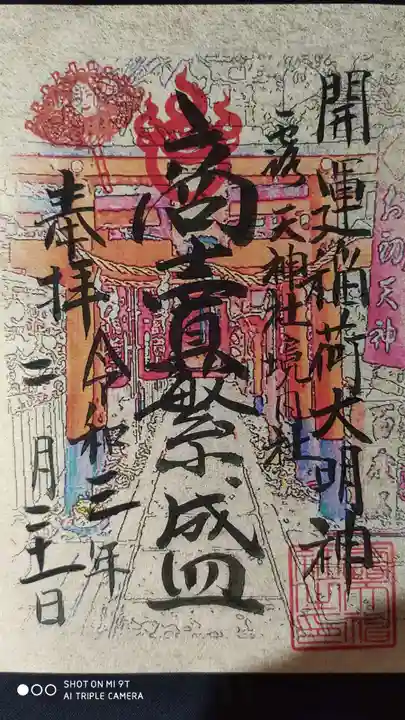 開運稲荷大明神
露天神社境内社
商売繁盛
奉拝
令和三年
二月二十一日
お初天神
SHOT ON MI 9T
AI TRIPLE CAMERA